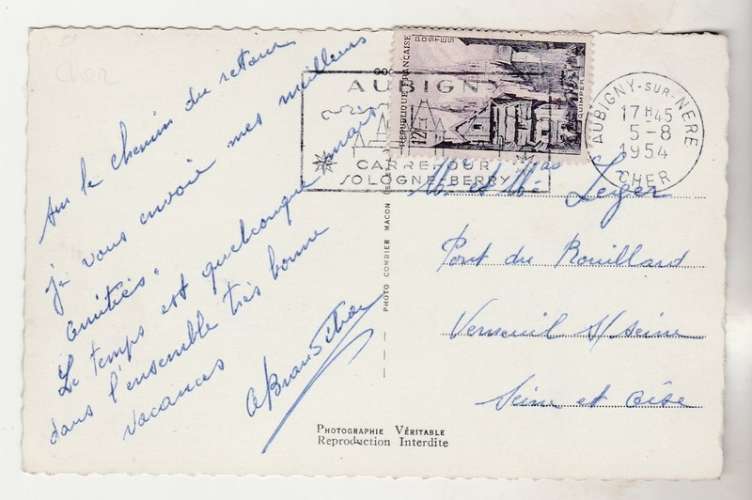 Cher
Sur le chemin du retour
je vous envoie mes meilleurs
amitiés.
Le temps est quelconque mais
dans l'ensemble très bonne
vacances
AUBIGNY
CARREFOUR
SOLOGNE-BERRY
POSTES
REPUBLIQUE FRANÇAISE
12F
QUIMPER
AUBIGNY-SUR-NERE
17H45
5-8
1954
CHER
Mr et Mme Leger
Pont du Rouillard
Verneuil s/seine
Seine et Oise
PHOTO COMBIER MACON
PHOTOGRAPHIE VÉRITABLE
Reproduction Interdite